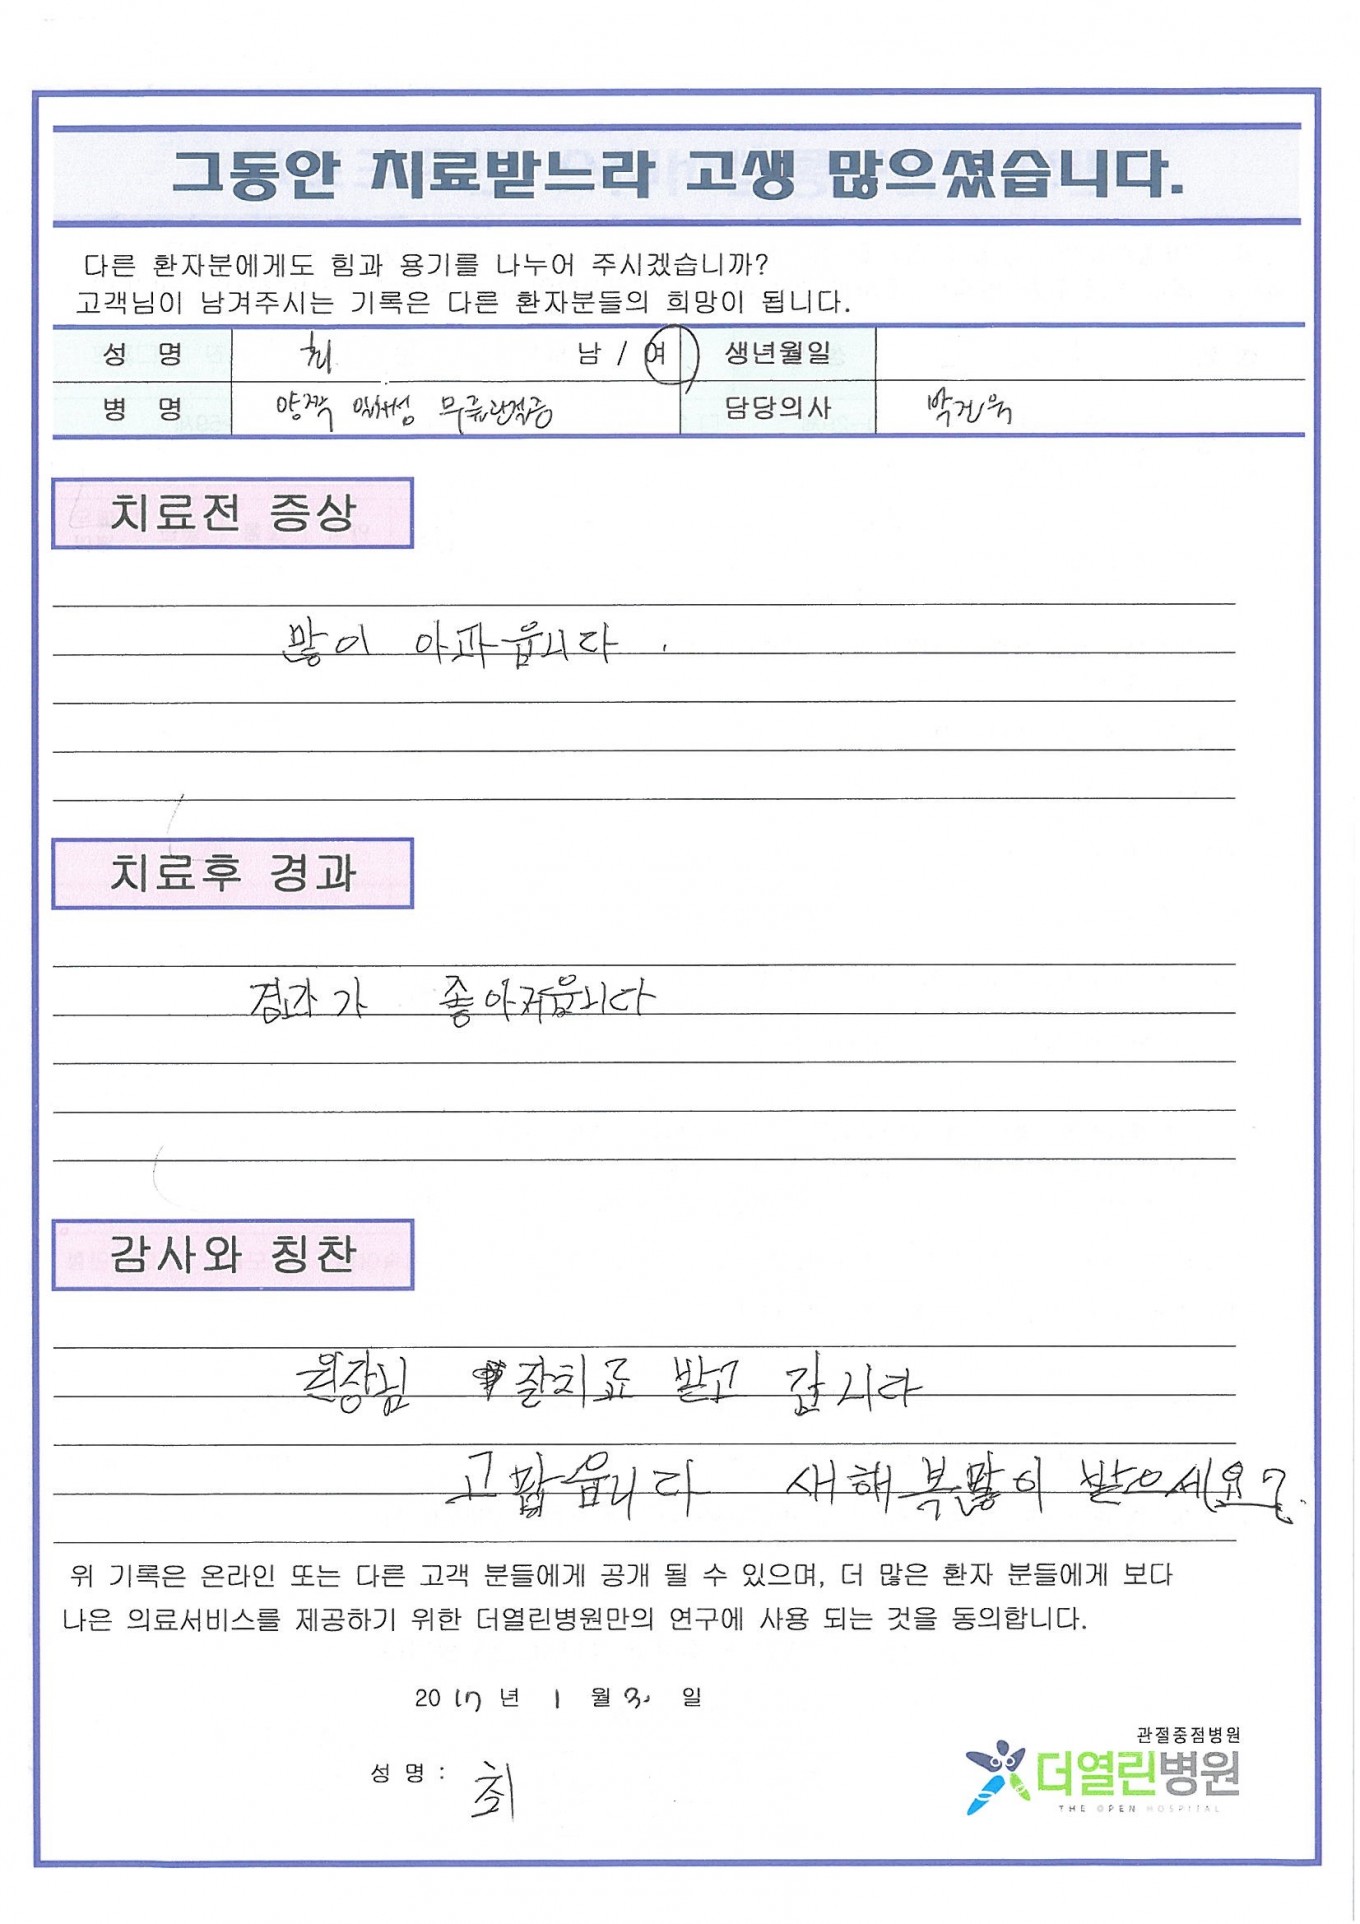 그동안 치료받느라 고생 많으셨습니다.
다른 환자분에게도 힘과 용기를 나누어 주시겠습니까?
고객님이 남겨주시는 기록은 다른 환자분들의 희망이 됩니다.
성 명 최 남 / 여 생년월일
병 명 양쪽 일차성 무릎관절증 담당의사 박건욱
치료전 증상
많이 아파읍니다.
치료후 경과
경과가 좋아저읍니다
감사와 칭찬
원장님 잘치료 받고 갑니다
고맙읍니다 새해복많이 받으세요?
위 기록은 온라인 또는 다른 고객 분들에게 공개 될 수 있으며, 더 많은 환자 분들에게 보다
나은 의료서비스를 제공하기 위한 더열린병원만의 연구에 사용 되는 것을 동의합니다.
2017 년 1 월 3. 일
관절중점병원
성 명 : 최
더열린병원
THE OPEN HOSPITAL